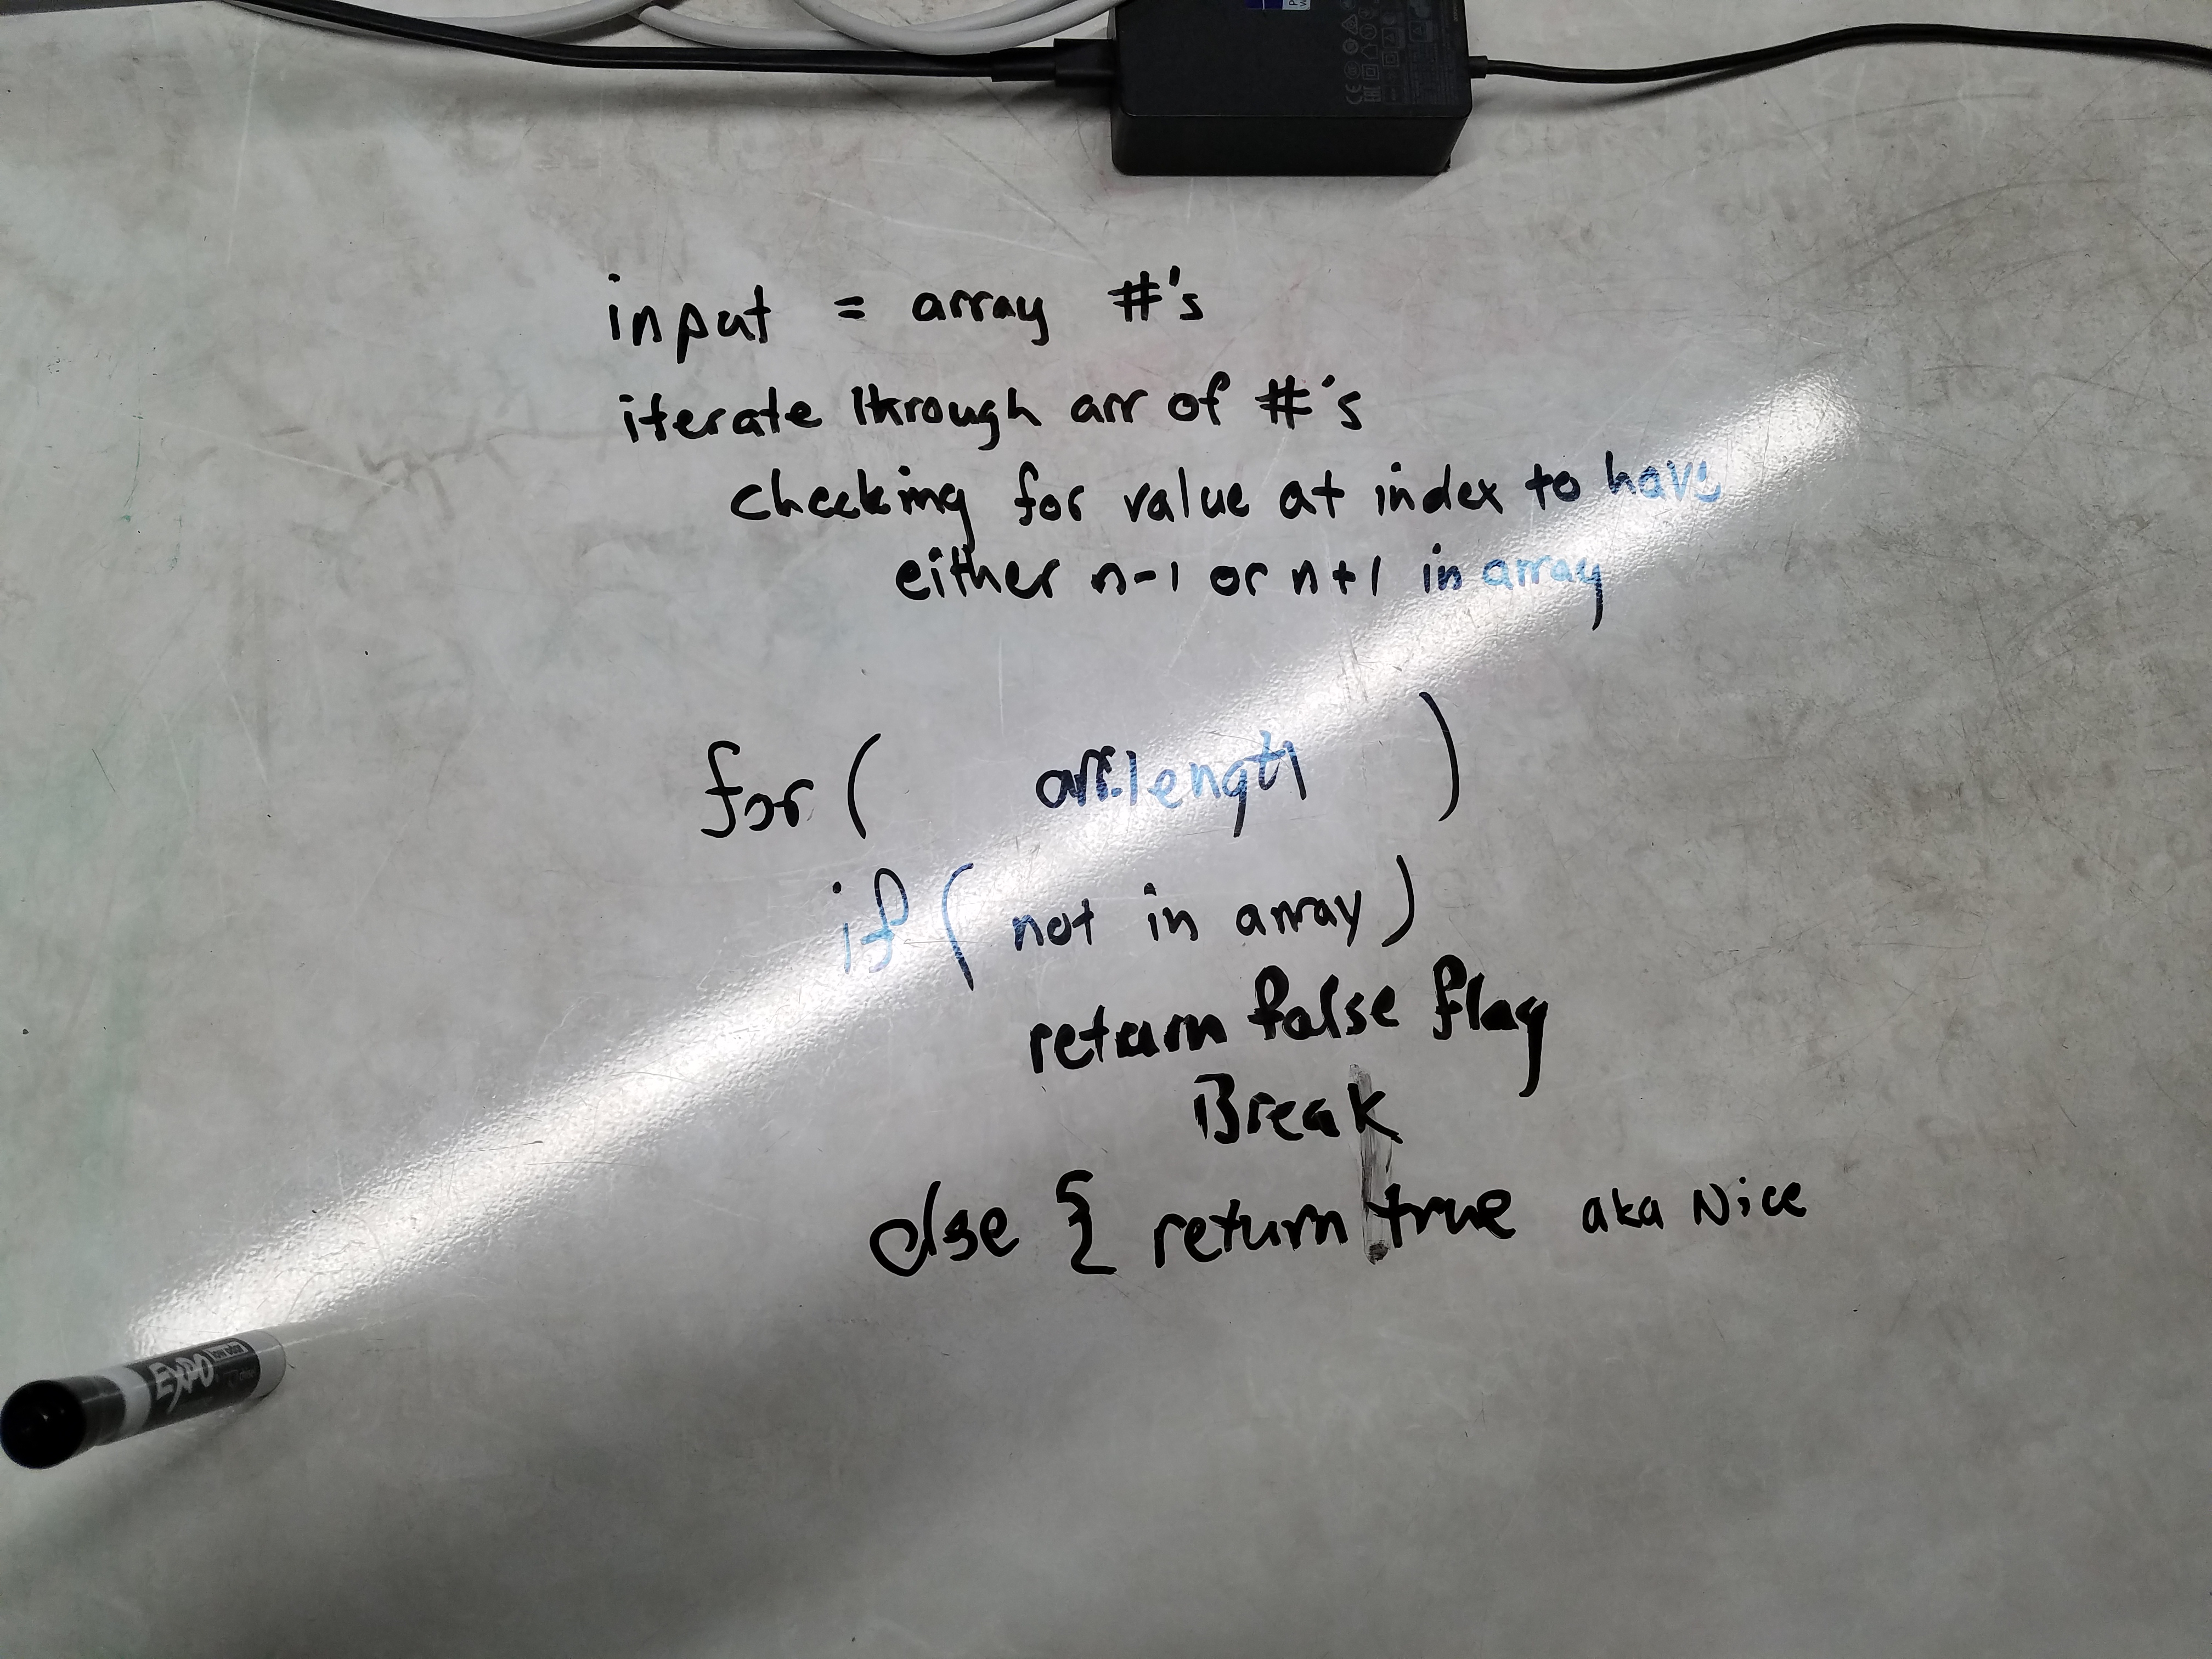 input = array #'s
iterate through arr of #'s
checking for value at index to have
either n-1 or n+1 in array
for ( arr.length )
if ( not in array )
return false flag
Break
else { return true aka Nice
EXPO low odor